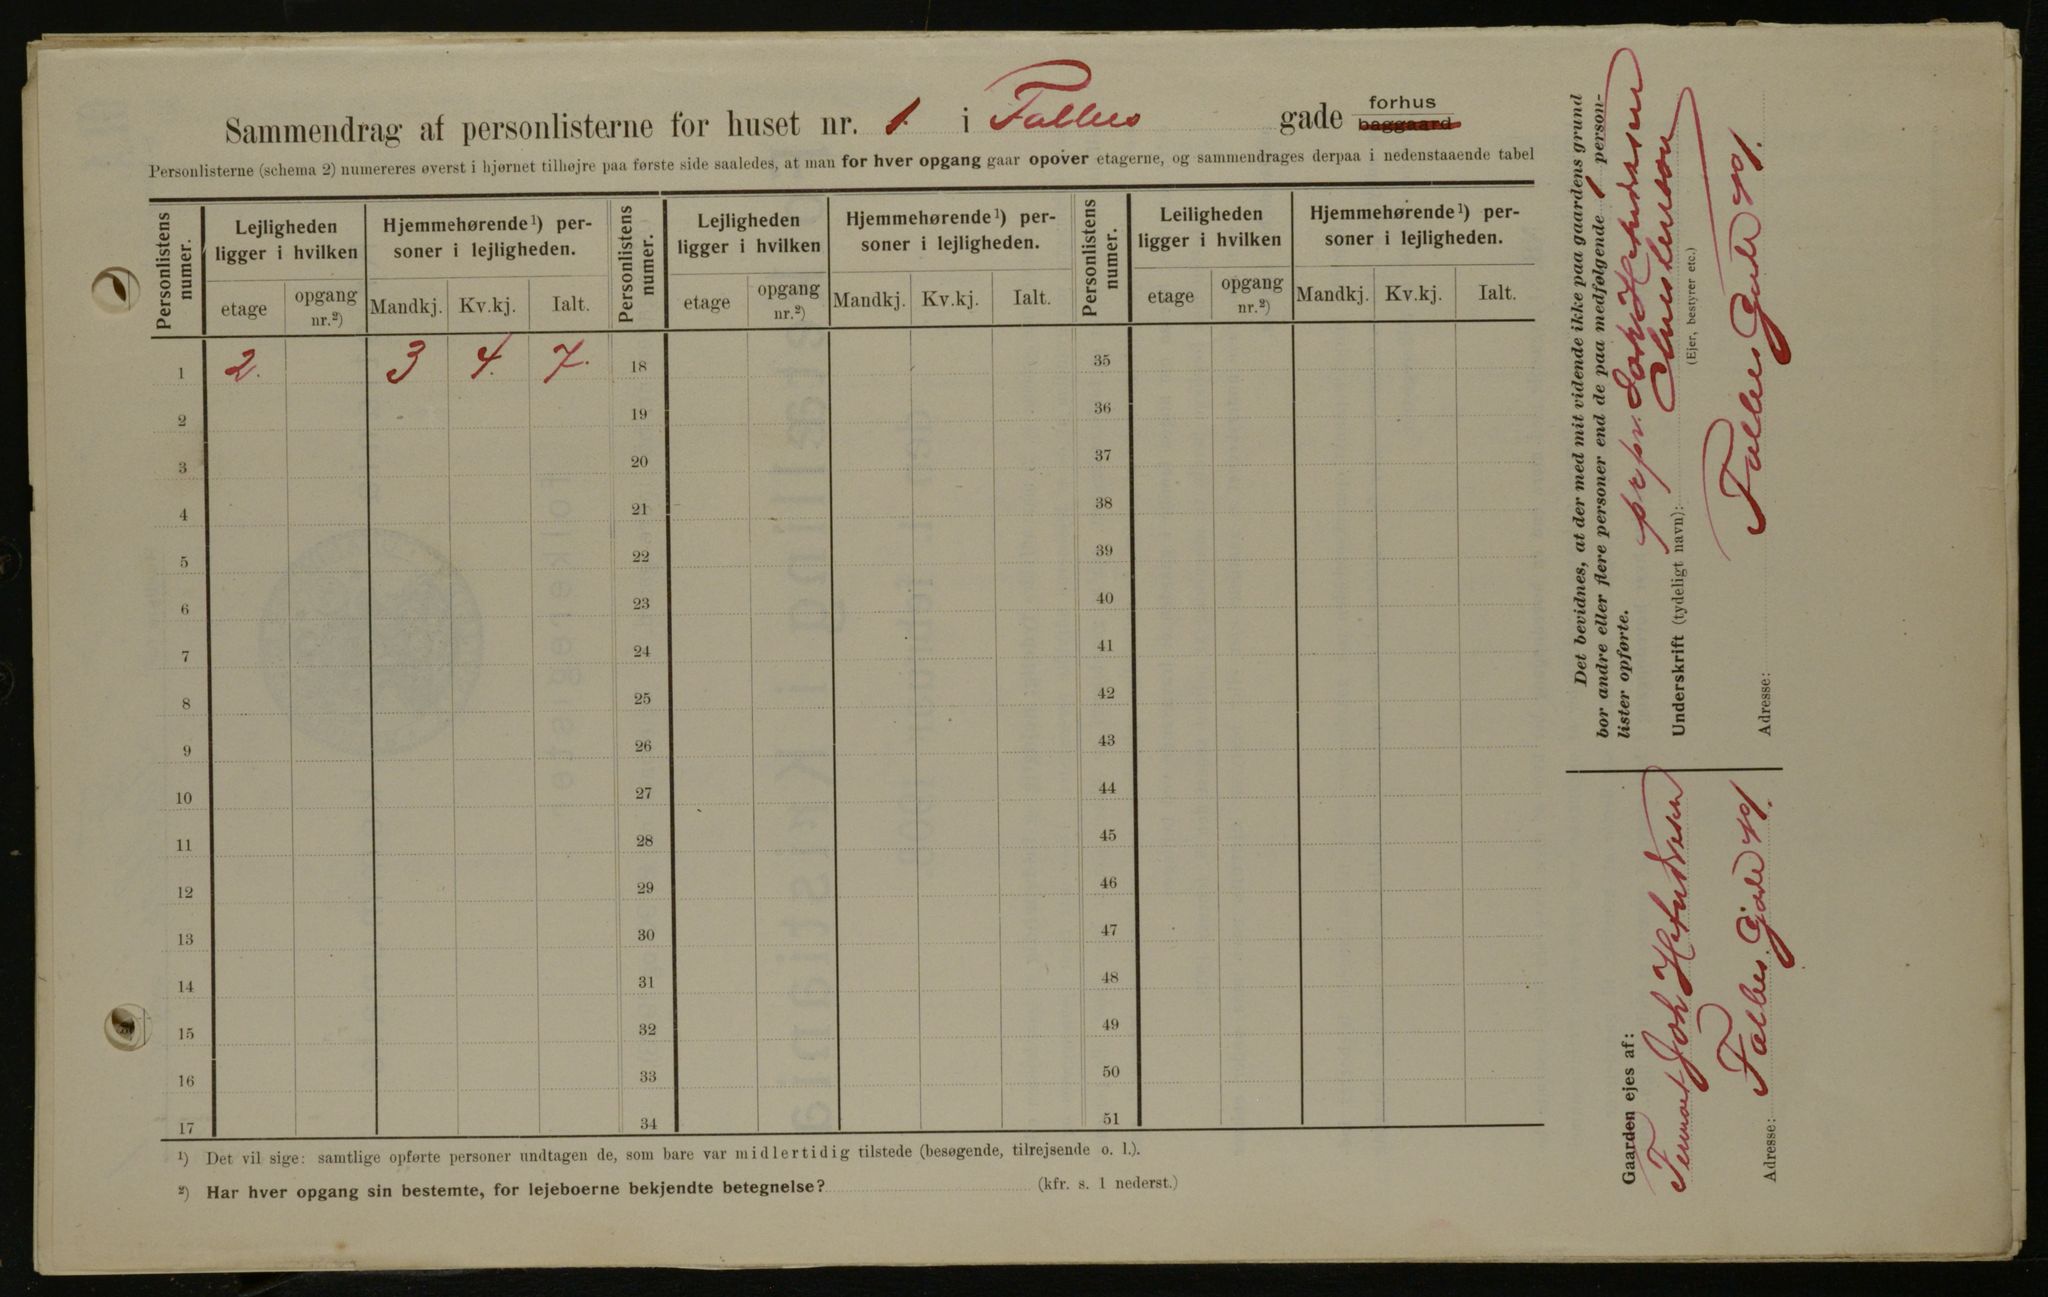 Sammendrag af personlisterne for huset nr. 1. i Falbes gade forhus baggaard
Personlisterne (schema 2) numereres øverst i hjørnet tilhøjre paa første side saaledes, at man for hver opgang gaar opover etagerne, og sammendrages derpaa i nedenstaaende tabel
Personlistens numer. Lejligheden ligger i hvilken Hjemmehørende¹) personer i lejligheden. Personlistens numer. Lejligheden ligger i hvilken Hjemmehørende¹) personer i lejligheden. Personlistens numer. Leiligheden ligger i hvilken Hjemmehørende¹) personer i lejligheden.
etage opgang nr.²) Mandkj. Kv.kj. Ialt. etage opgang nr.²) Mandkj. Kv.kj. Ialt. etage opgang nr.²) Mandkj. Kv.kj. Ialt.
1 2. 3 4. 7. 18 35
2 19 36
3 20 37
4 21 38
5 22 39
6 23 40
7 24 41
8 25 42
9 26 43
10 27 44
11 28 45
12 29 46
13 30 47
14 31 48
15 32 49
16 33 50
17 34 51
¹) Det vil sige: samtlige opførte personer undtagen de, som bare var midlertidig tilstede (besøgende, tilrejsende o. l.).
²) Har hver opgang sin bestemte, for lejeboerne bekjendte betegnelse? (kfr. s. 1 nederst.)
Det bevidnes, at der med mit vidende ikke paa gaardens grund
bor andre eller flere personer end de paa medfølgende 1 person-
lister opførte.
Underskrift (tydeligt navn):
(Ejer, bestyrer etc.)
Adresse: Falbes Gade
Gaarden ejes af:
Joh
Adresse: Falbes Gade